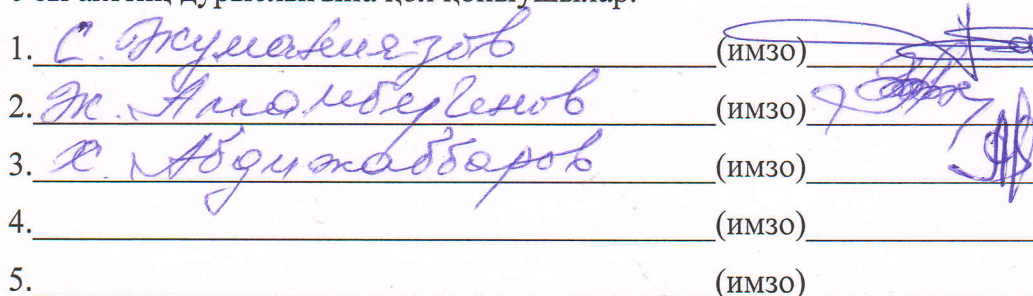 1. С. Жуманиязов (имзо)
2. Ж. Алламбергенов (имзо)
3. Х. Абдижаббаров (имзо)
4. (имзо)
5. (имзо)